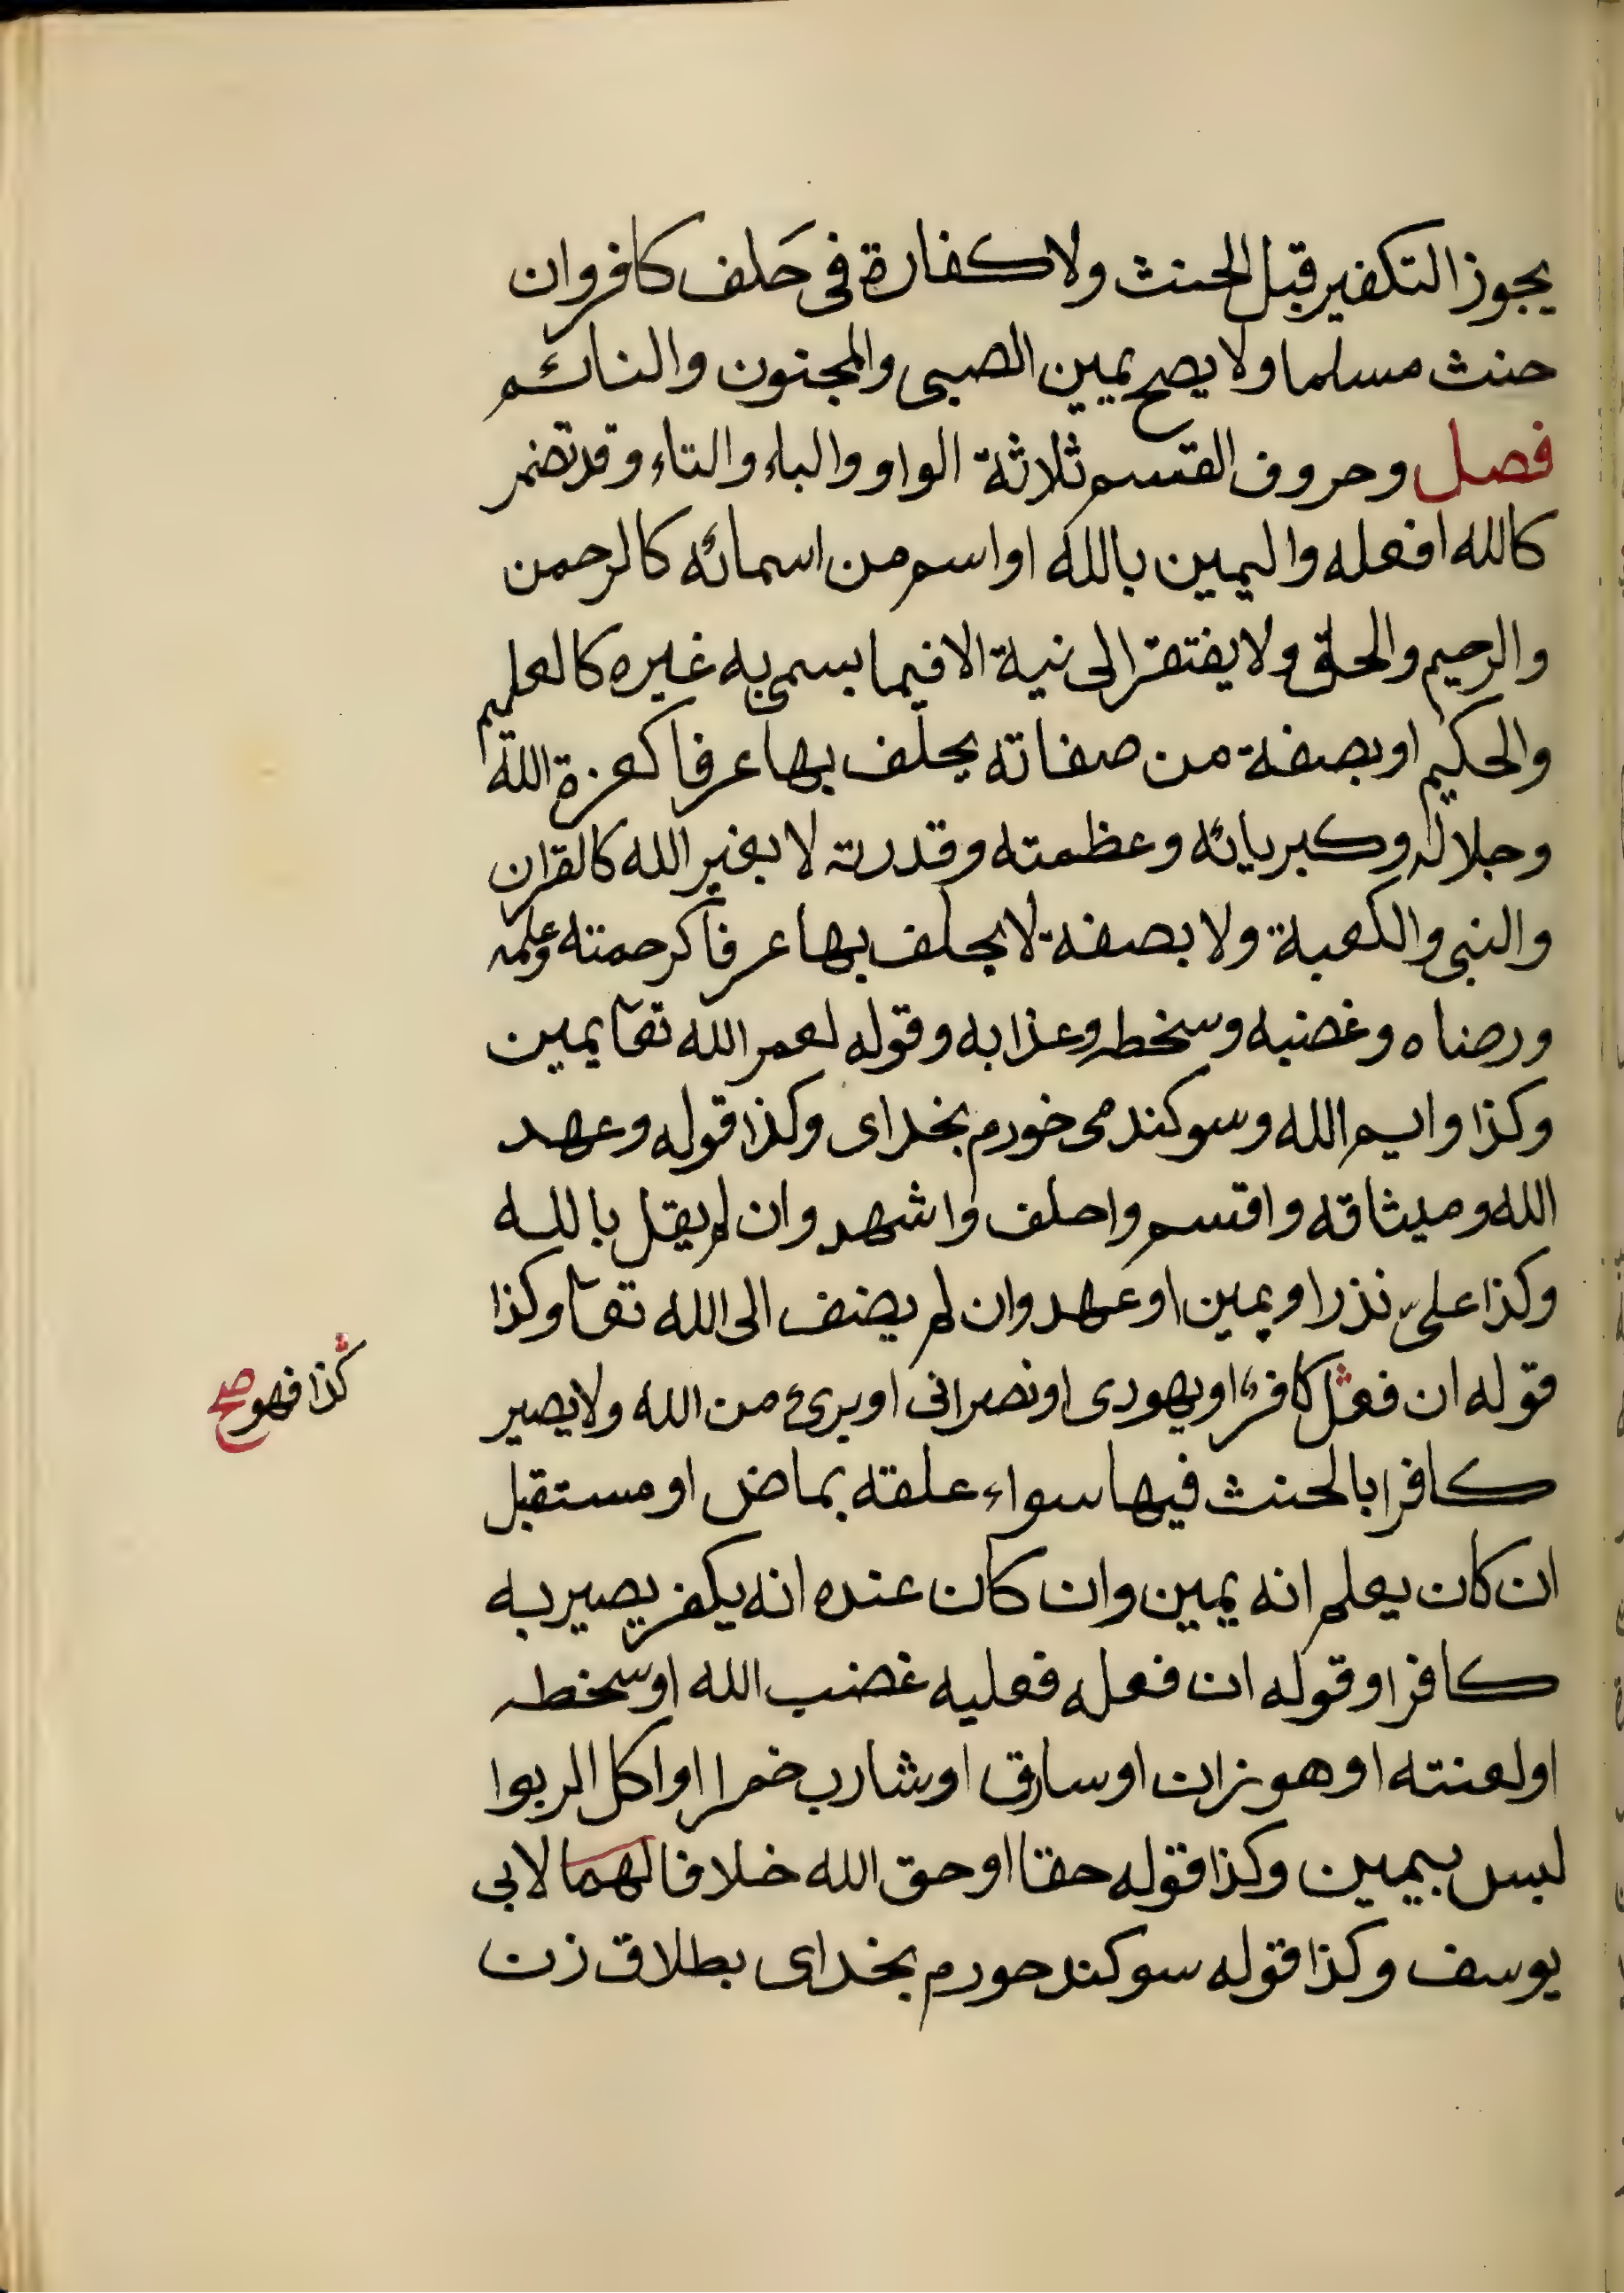 يجوز التكفير قبل الحنث ولا كفارة فى حَلف كافر وان
حنث مسلما ولا يصح يمين الصبى والمجنون والنائم
فصل وحروف القسم ثلاثة الواو والباء والتاء وقد تضمر
كالله افعله واليمين بالله او اسم من اسمائه كالرحمن
والرحيم والحق ولا يفتقر الى نية الا فيما يسمى به غيره كالعليم
والحكيم او بصفة من صفاته يحلف بها عرفا كعزة الله
وجلاله وكبريائه وعظمته وقدرته لا بغير الله كالقران
والنبى والكعبة ولا بصفة لا يحلف بها عرفا كرحمته وعلمه
ورضاه وغضبه وسخطه وعذابه وقوله لعمر الله تعا يمين
وكذا وايم الله وسوكند مى خورم بخداى وكذا قوله وعهد
الله وميثاقه واقسم واحلف واشهد وان لم يقل بالله
وكذا علىّ نذر او يمين او عهد وان لم يضف الى الله تعا وكذا
قوله ان فعل كافر او يهودى او نصرانى او برئ من الله ولا يصير
كذا فهو صح
كافرا بالحنث فيها سواء علقه بماض او مستقبل
ان كان يعلم انه يمين وان كان عنده انه يكفر يصير به
كافرا وقوله ان فعله فعليه غضب الله او سخطه
او لعنته او هو زان او سارق او شارب خمر او اكل الربوا
ليس بيمين وكذا قوله حقا او حق الله خلافا لهما لابى
يوسف وكذا قوله سوكند حورم بخداى بطلاق زن